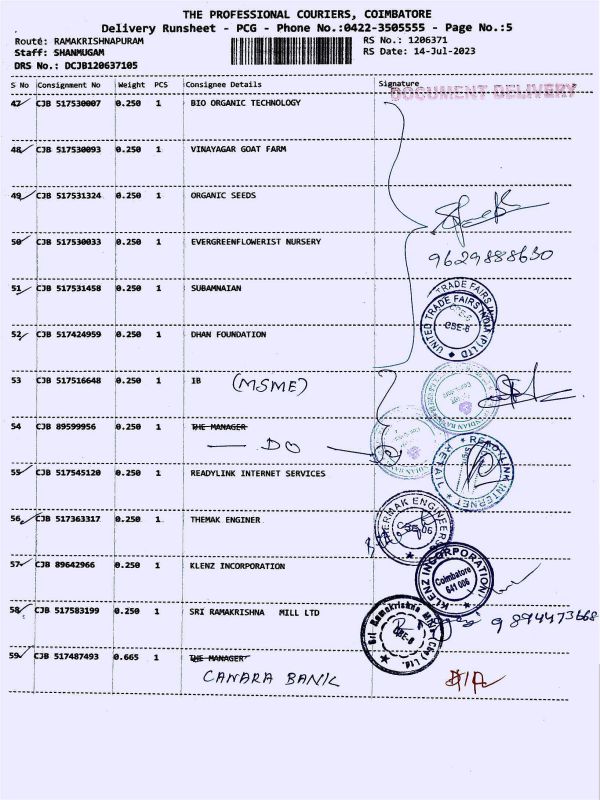 THE PROFESSIONAL COURIERS, COIMBATORE
Delivery Runsheet - PCG - Phone No.:0422-3505555 - Page No.:5
Route: RAMAKRISHNAPURAM RS No.: 1206371
Staff: SHANMUGAM RS Date: 14-Jul-2023
DRS No.: DCJB120637105
S No Consignment No Weight PCS Consignee Details Signature
DOCUMENT DELIVERY
47 CJB 517530007 0.250 1 BIO ORGANIC TECHNOLOGY
48 CJB 517530093 0.250 1 VINAYAGAR GOAT FARM
49 CJB 517531324 0.250 1 ORGANIC SEEDS
50 CJB 517530033 0.250 1 EVERGREENFLOWERIST NURSERY
9629888630
51 CJB 517531458 0.250 1 SUBAMNAIAN
UNITED TRADE FAIRS INDIA (P) LTD
CBE-6
52 CJB 517424959 0.250 1 DHAN FOUNDATION
53 CJB 517516648 0.250 1 IB (MSME)
54 CJB 89599956 0.250 1 THE MANAGER
DO
55 CJB 517545120 0.250 1 READYLINK INTERNET SERVICES
READYLINK INTERNET RETAIL
56 CJB 517363317 0.250 1 THEMAK ENGINER
THERMAK ENGINEERS
57 CJB 89642966 0.250 1 KLENZ INCORPORATION
KLENZ INCORPORATION
Coimbatore
641 006
58 CJB 517583199 0.250 1 SRI RAMAKRISHNA MILL LTD
Sri Ramakrishna Mills (Cbe) Ltd.
CBE-6
9894473668
59 CJB 517487493 0.665 1 THE MANAGER
CANARA BANK